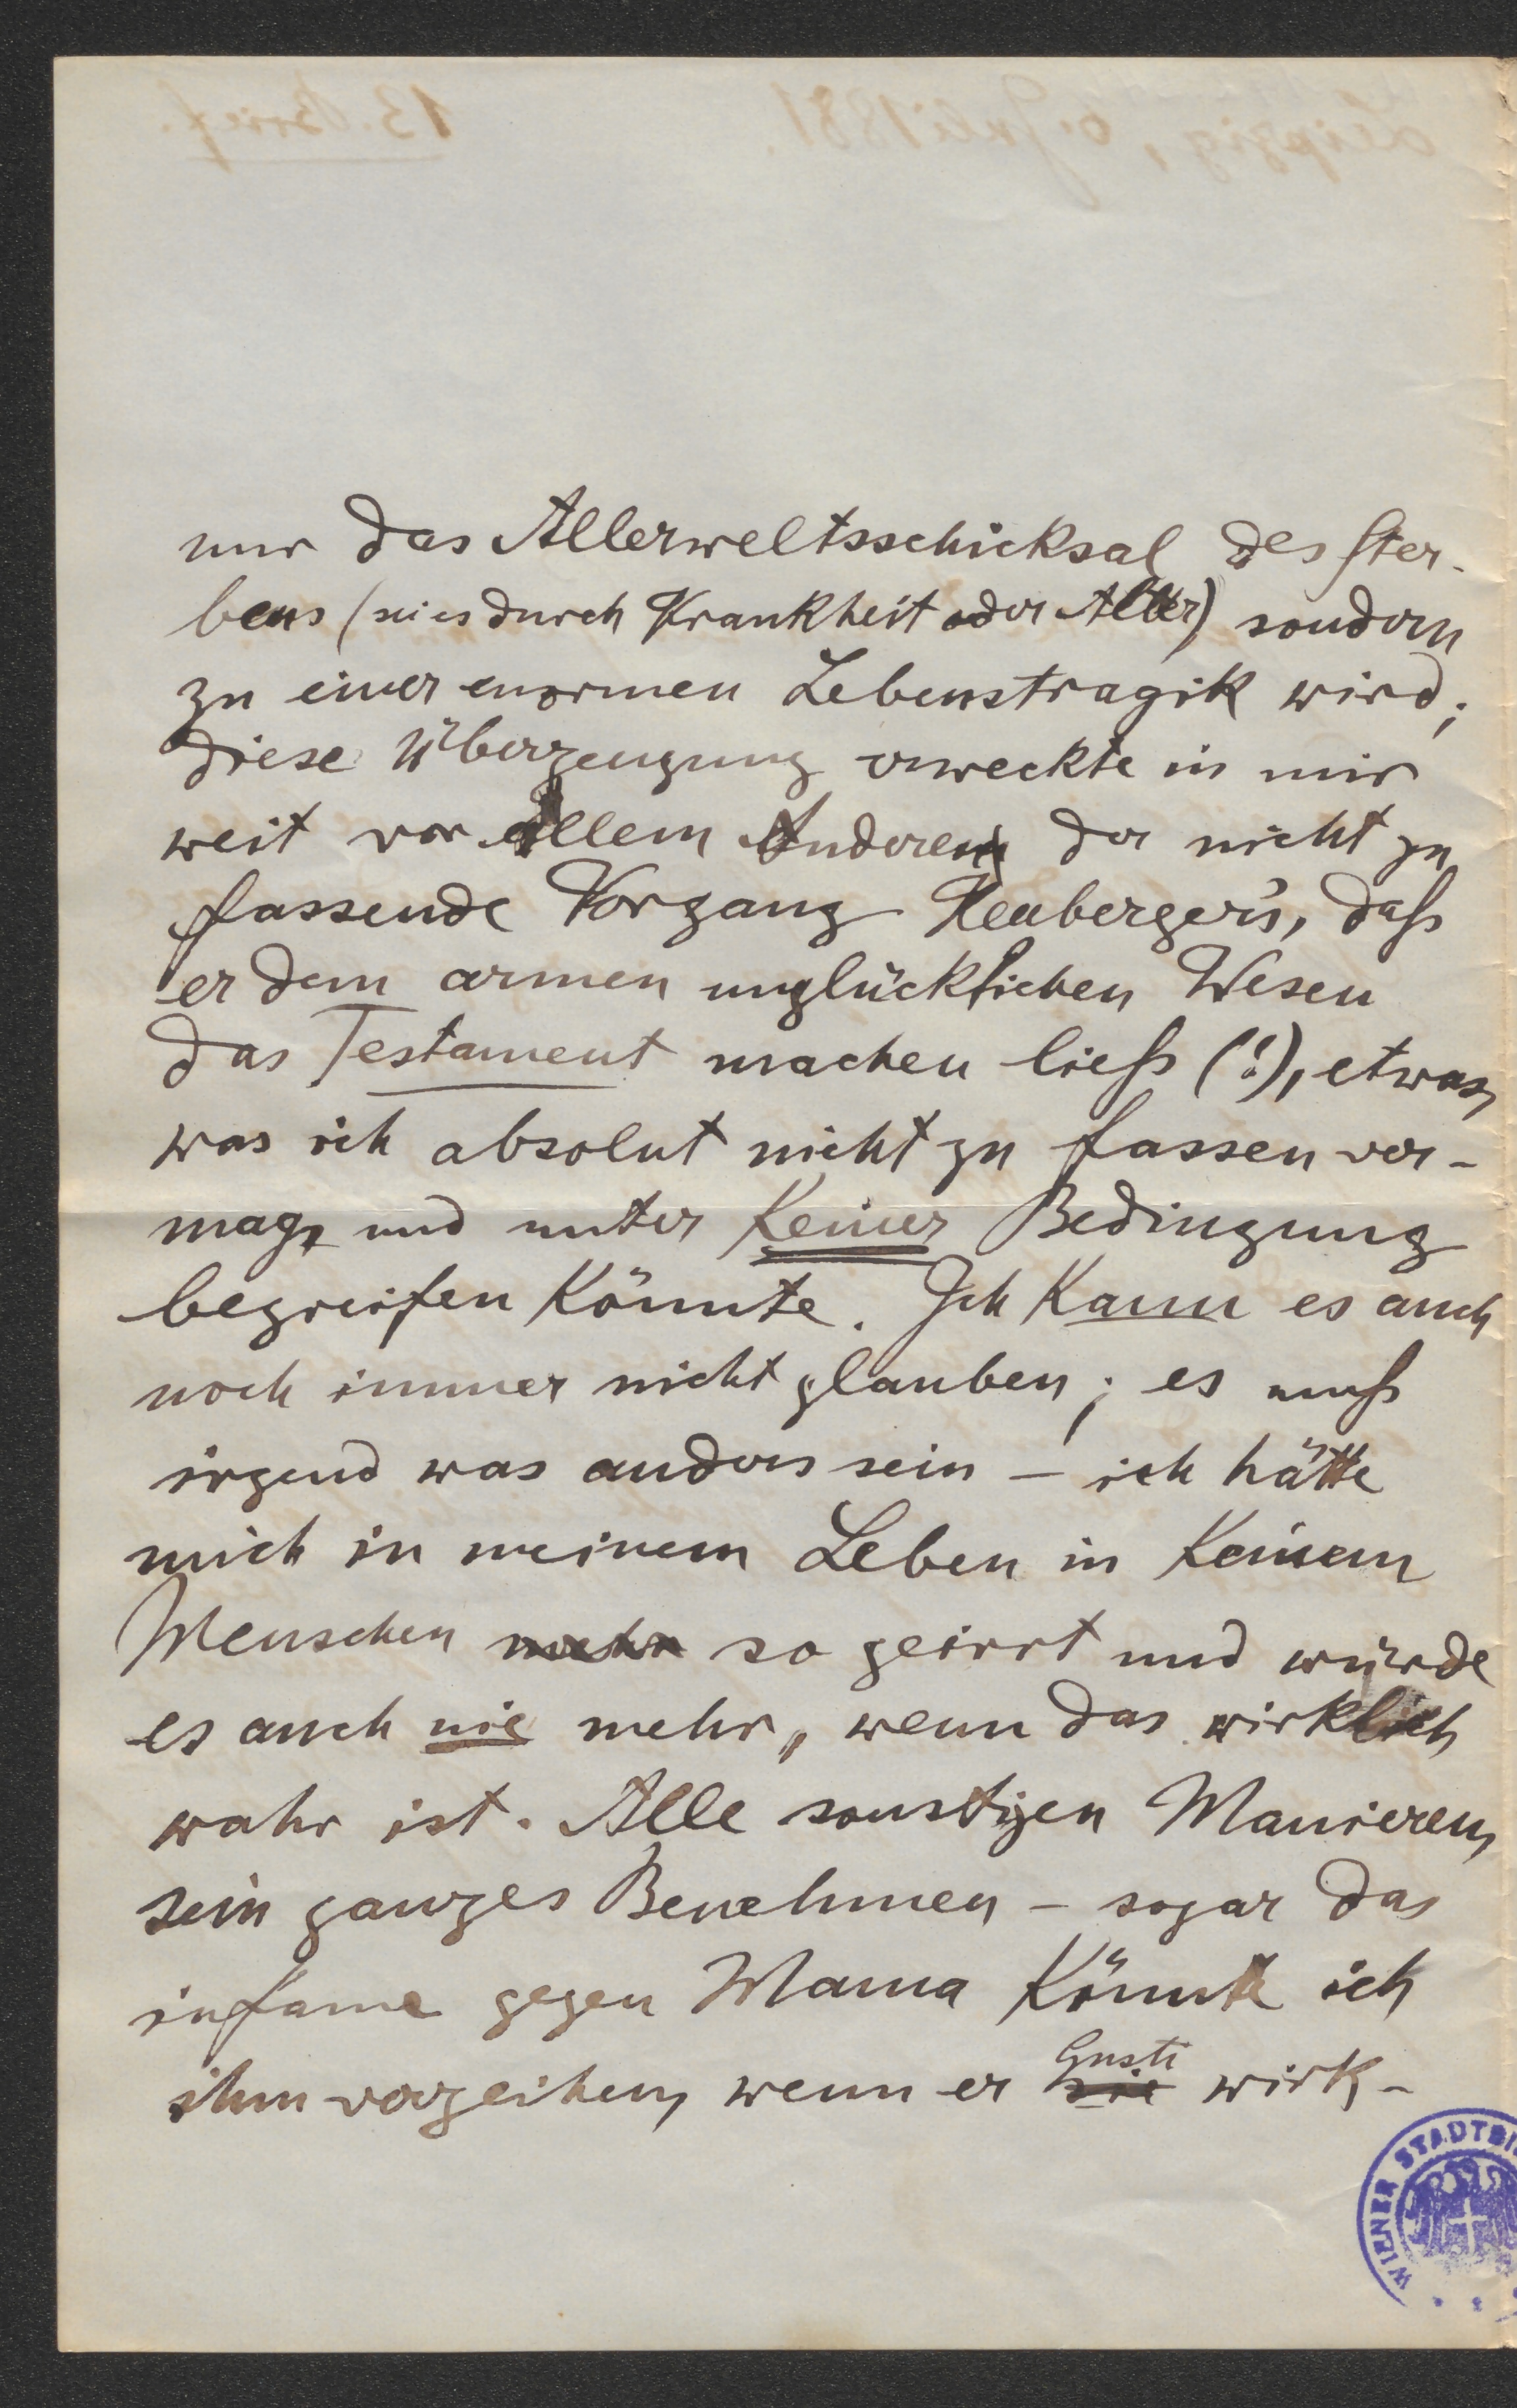 nur das Allerweltsschicksal des Ster-
bens (sei es durch Krankheit oder Alter) sondern
zu einer enormen Lebenstragik wird;
diese Überzeugung erweckte in mir
weit vor Allem Anderen der nicht zu
fassende Vorgang Heubergers, daß
er dem armen unglücklichen Wesen
das Testament machen ließ (!), etwas,
was ich absolut nicht zu fassen ver-
mag, und unter keiner Bedingung
begreifen könnte. Ich kann es auch
noch immer nicht glauben; es muß
irgend was anders sein – ich hätte
mich in meinem Leben in keinem
Menschen mehr so geirrt und würde
es auch nie mehr, wenn das wirklich
wahr ist. Alle sonstigen Manieren,
sein ganzes Benehmen – sogar das
infame gegen Mama könnte ich
ihm verzeihen, wenn er sie Gusti wirk-
WIENER STADTBI